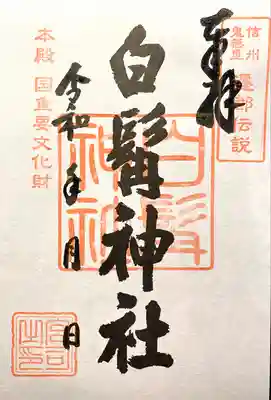 信州
鬼無里 遷都伝説
奉拝
白髯神社
白髯神社
令和 年 月 日
本殿 国重要文化財
宮司之印